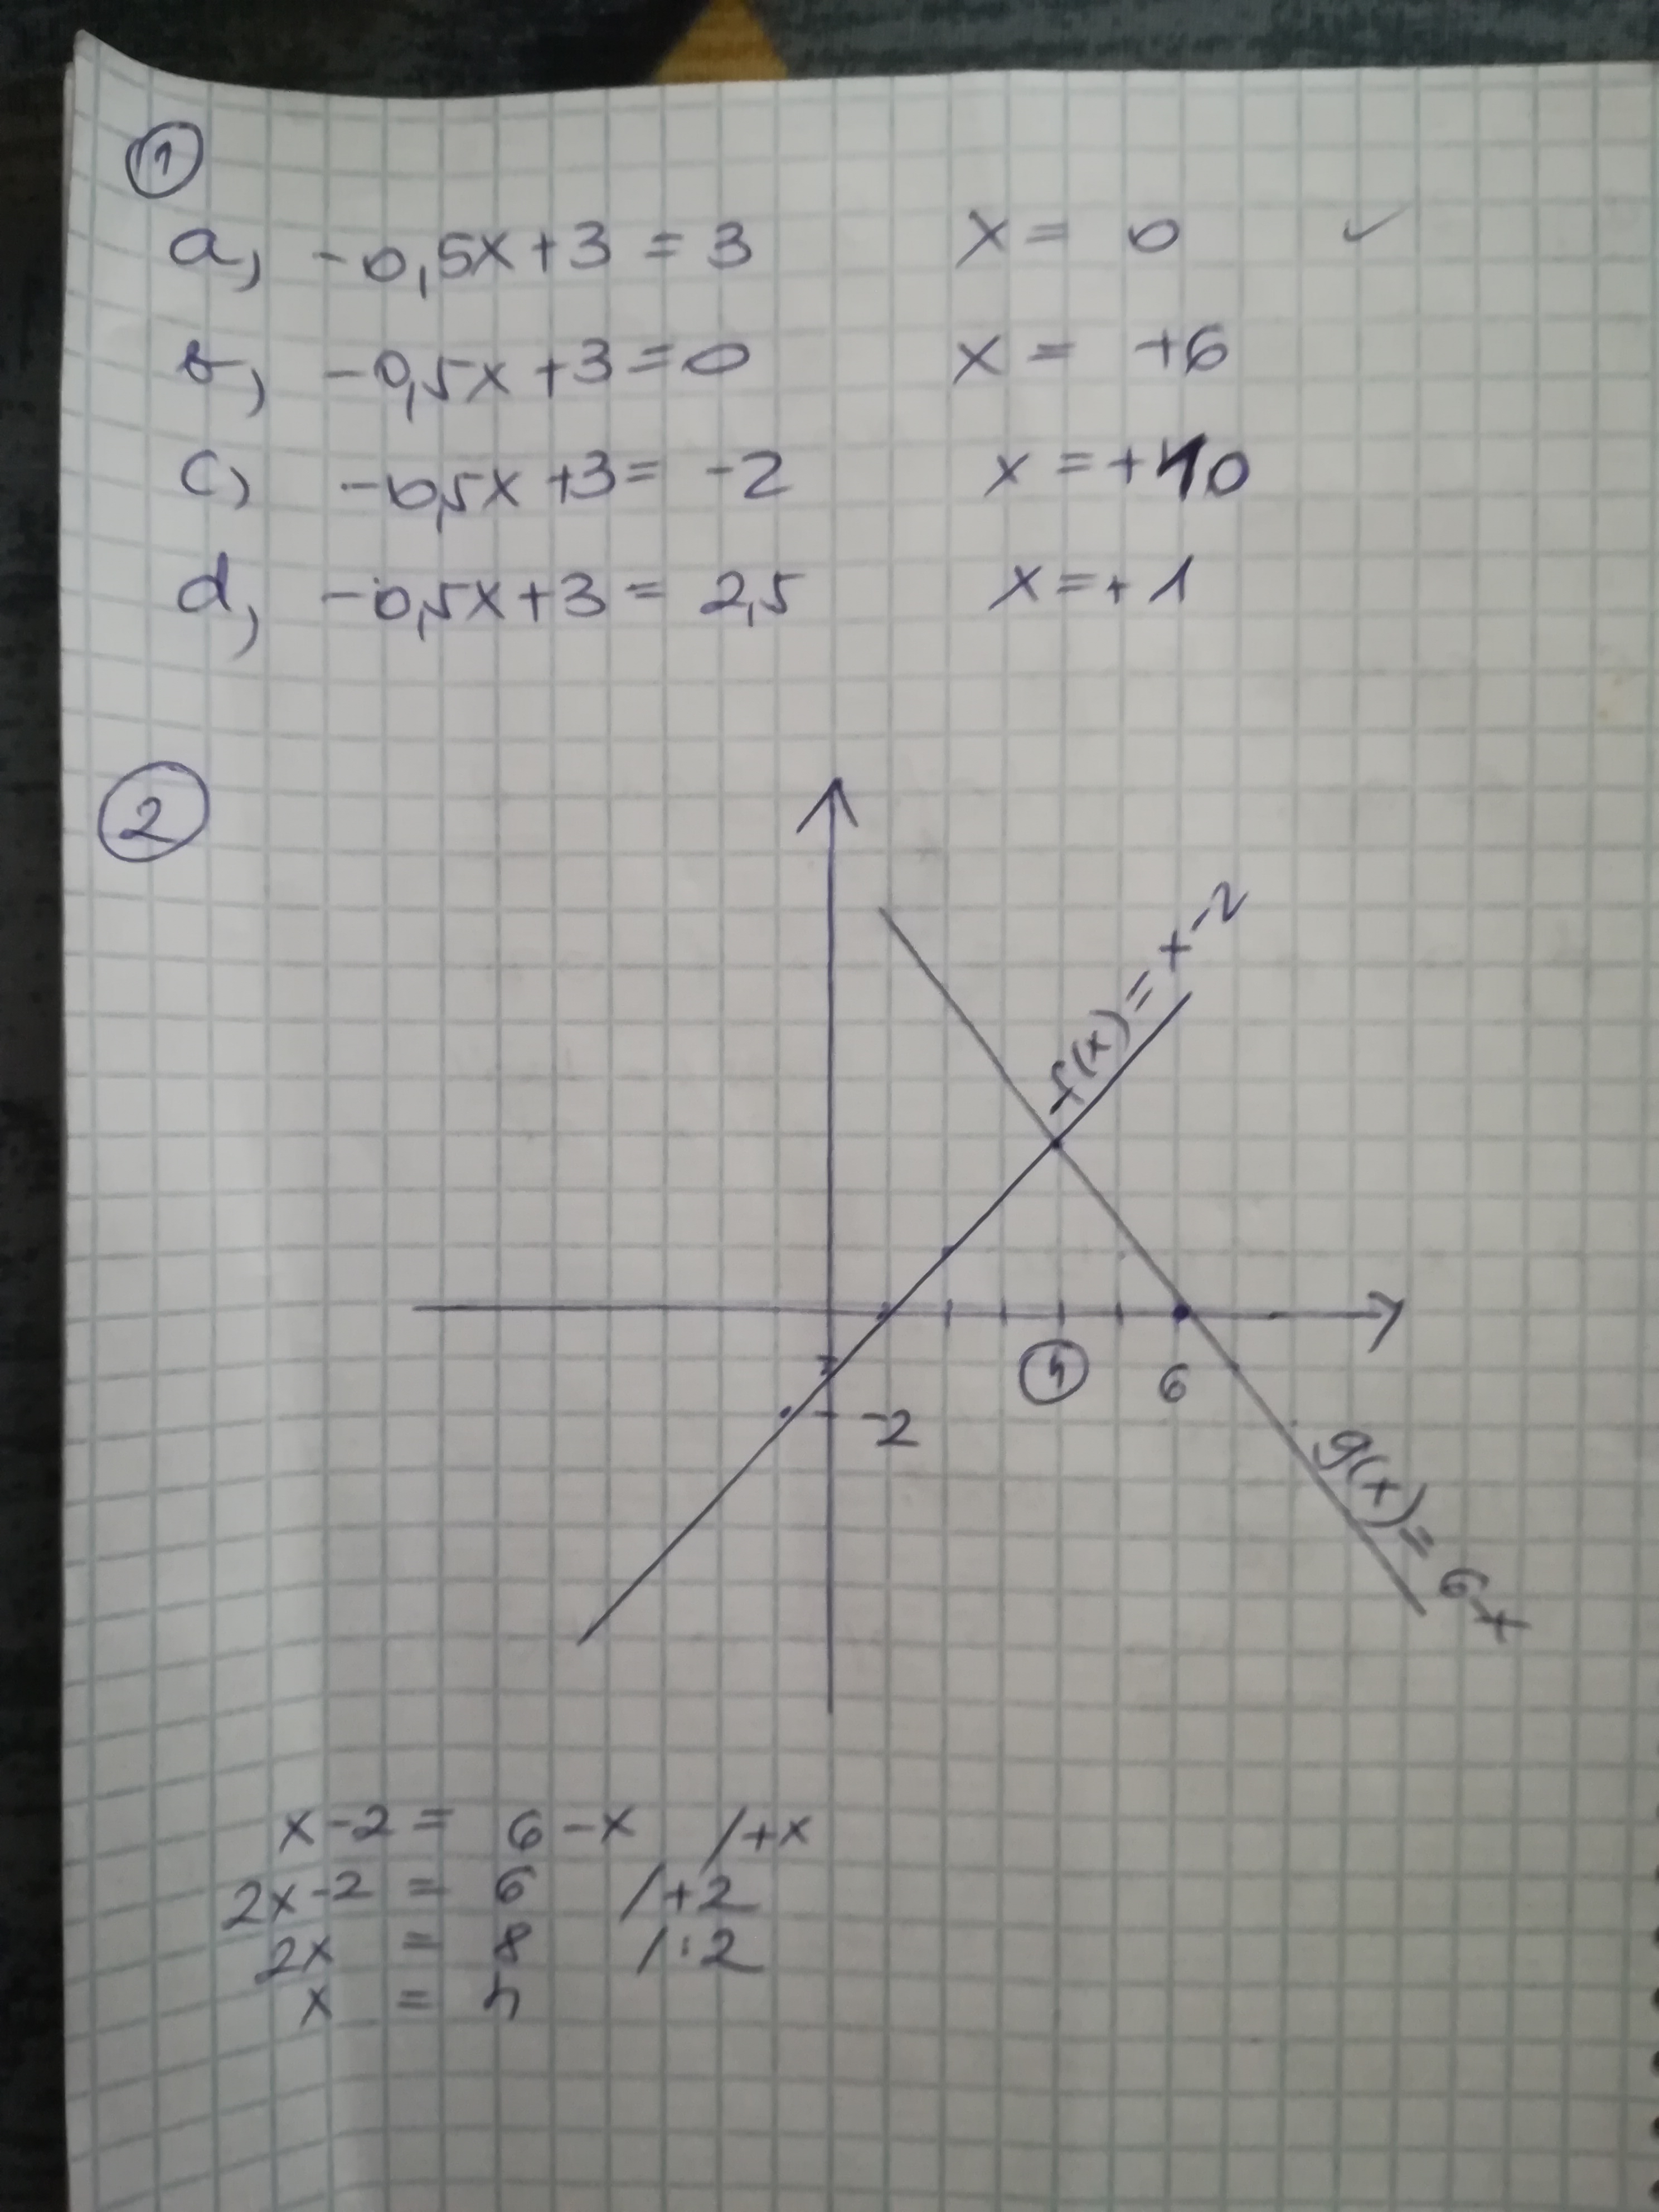 1
a, -0,5x+3 = 3 x = 0 ✓
b, -0,5x+3=0 x = +6
c) -0,5x+3= -2 x = +10
d, -0,5x+3 = 2,5 x=+1
2
f(x)= x-2
4 6
-2
g(x)= 6-x
x-2 = 6-x /+x
2x-2 = 6 /+2
2x = 8 /:2
x = 4